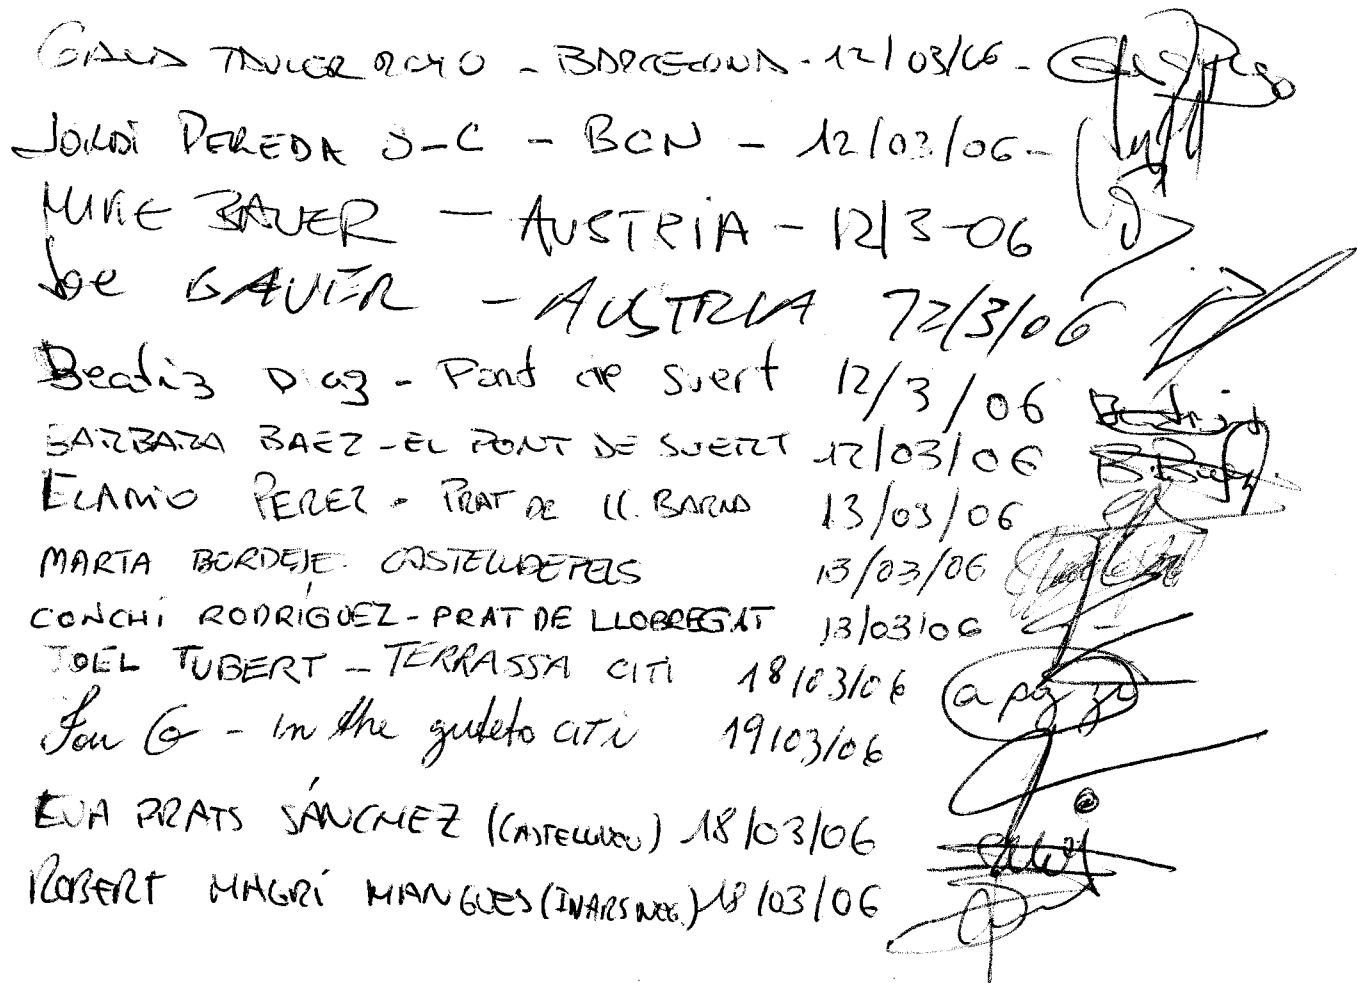 BARCELONA - 12/03/06 -
JORDI PEREDA S-C - BCN - 12/03/06 -
MIKE BAUER - AUSTRIA - 12/3-06
Joe BAUER - AUSTRIA 12/3/06
Beatriz Diaz - Pont de Suert 12/3/06
BARBARA BAEZ - EL PONT DE SUERT 12/03/06 B. Baez
PEREZ - PRAT DE LL. BARNA 13/03/06
MARTA BORDEJE CASTELLDEFELS 13/03/06
CONCHI RODRÍGUEZ - PRAT DE LLOBREGAT 13/03/06
JOEL TUBERT - TERRASSA CITI 18/03/06
G - in the gueteto citi 19/03/06
EVA PRATS SÁNCHEZ 18/03/06
ROBERT MAGRÍ MANGUES 18/03/06